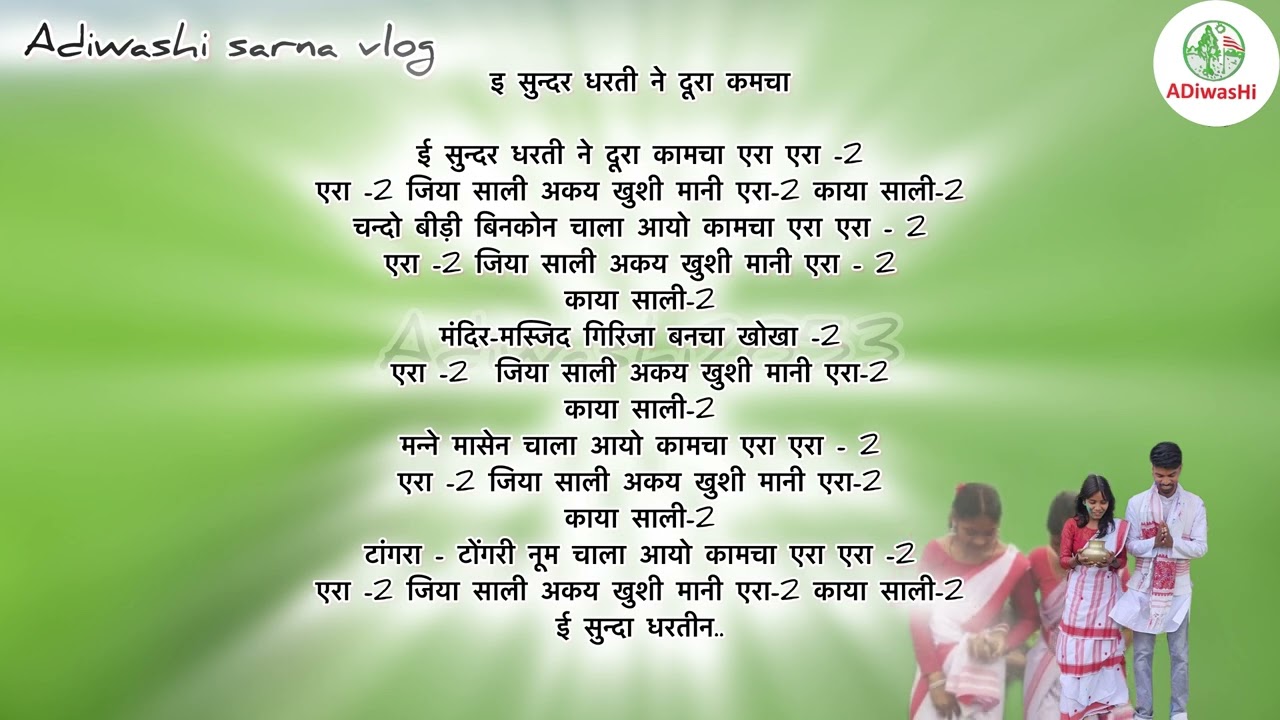 Adiwashi sarna vlog
ADiwasHi
इ सुन्दर धरती ने दूरा कमचा
ई सुन्दर धरती ने दूरा कामचा एरा एरा -2
एरा -2 जिया साली अकय खुशी मानी एरा-2 काया साली-2
चन्दो बीड़ी बिनकोन चाला आयो कामचा एरा एरा - 2
एरा -2 जिया साली अकय खुशी मानी एरा - 2
काया साली-2
मंदिर-मस्जिद गिरिजा बनचा खोखा -2
एरा -2 जिया साली अकय खुशी मानी एरा-2
काया साली-2
मन्ने मासेन चाला आयो कामचा एरा एरा - 2
एरा -2 जिया साली अकय खुशी मानी एरा-2
काया साली-2
टांगरा - टोंगरी नूम चाला आयो कामचा एरा एरा -2
एरा -2 जिया साली अकय खुशी मानी एरा-2 काया साली-2
ई सुन्दा धरतीन..